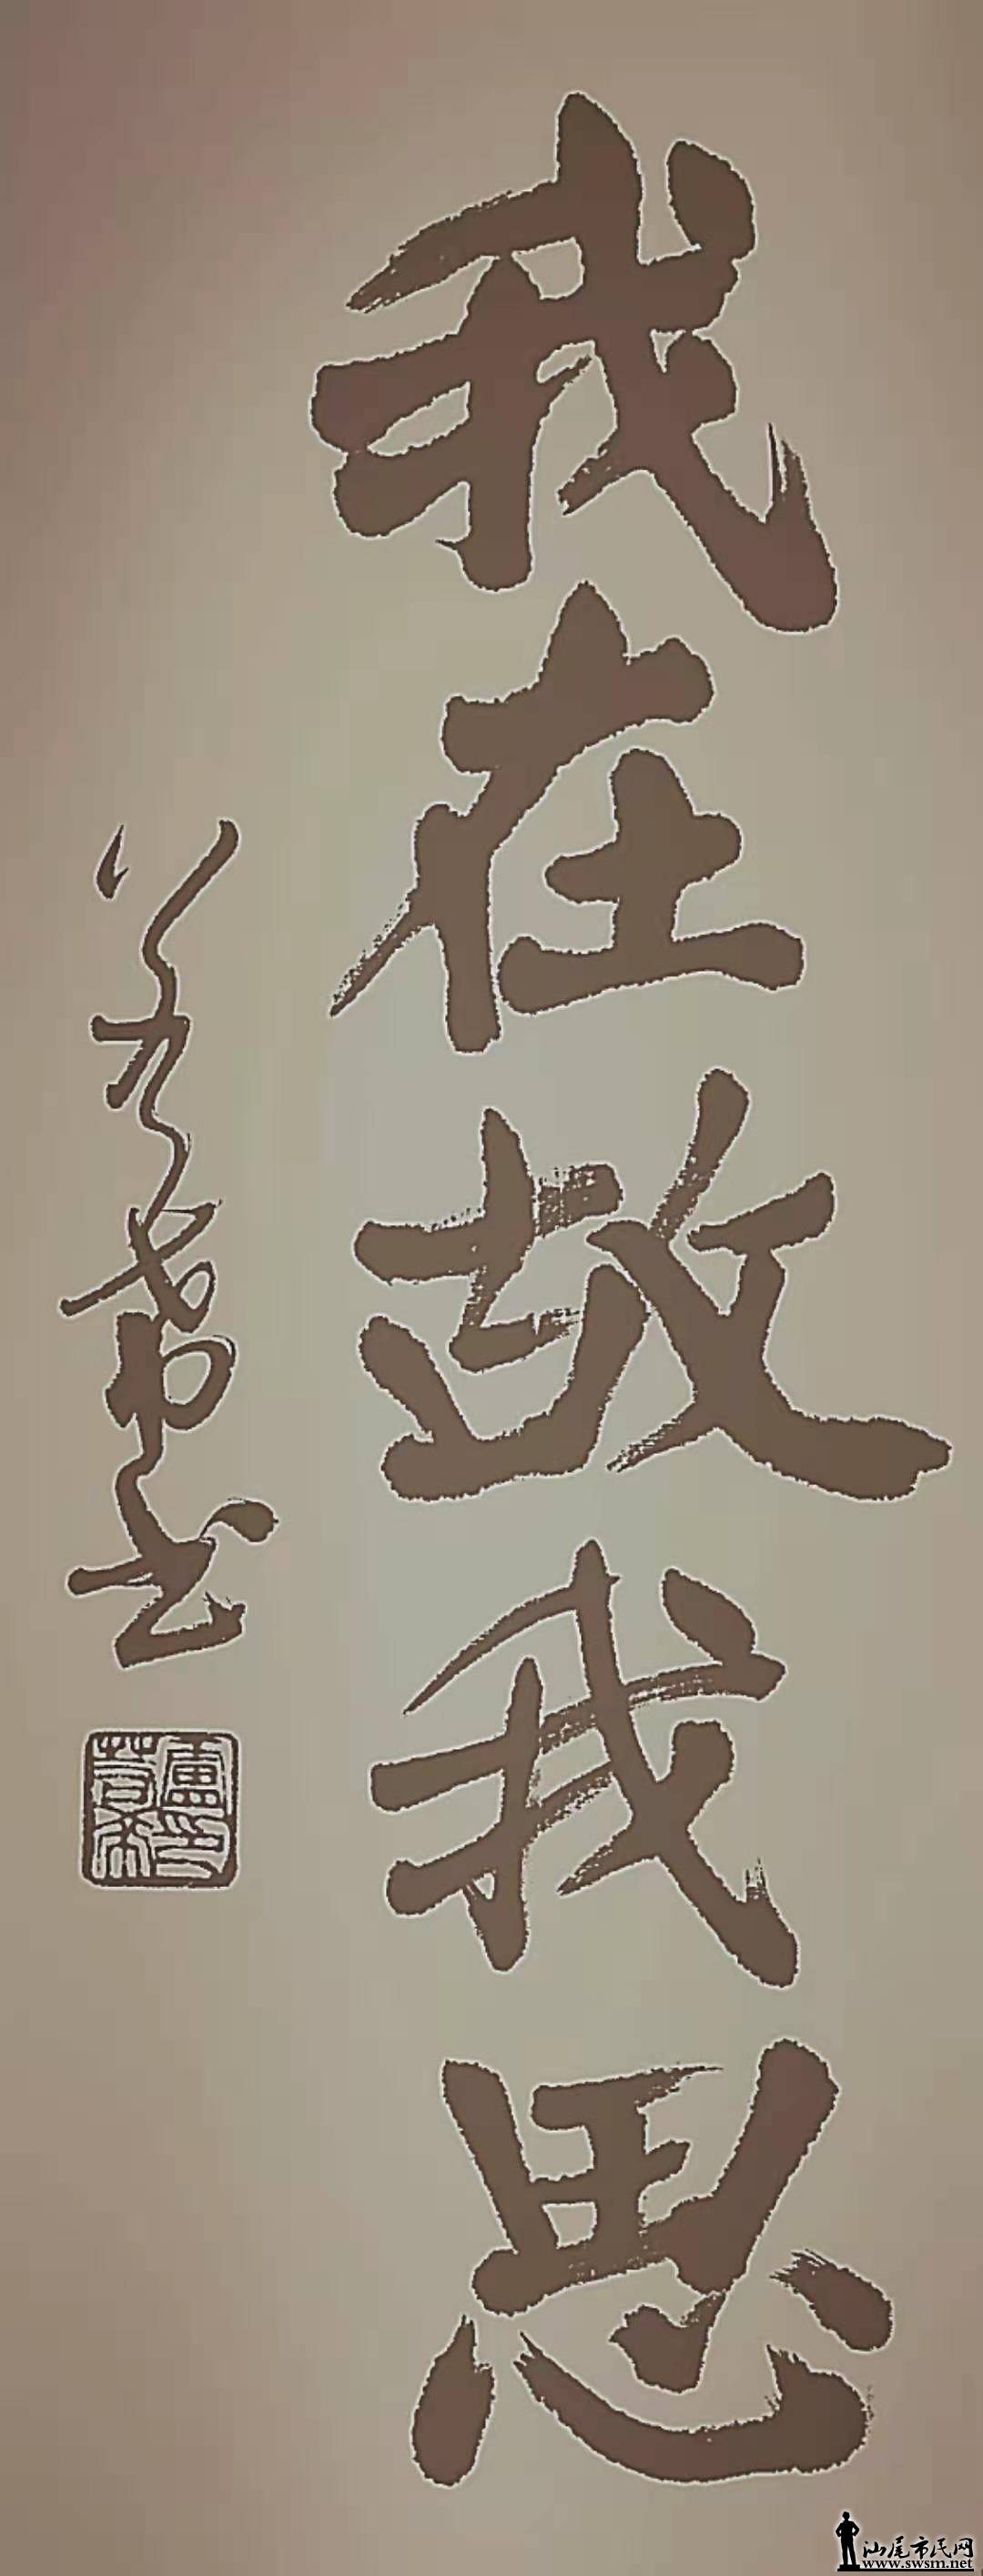 我在故我思
书
汕尾市民网
www.swsm.net